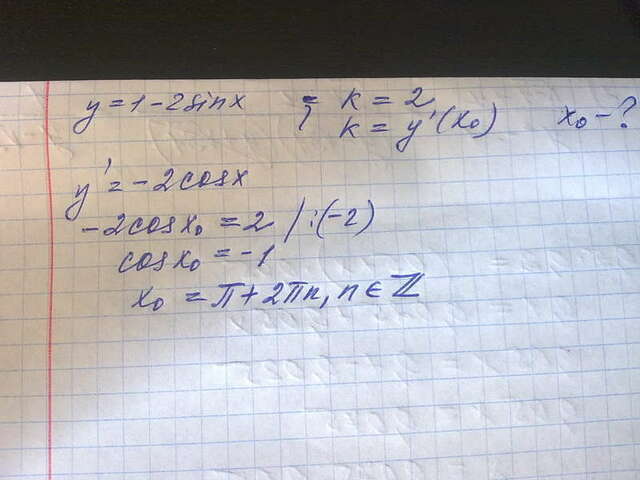 y = 1 - 2sinx ; k = 2
k = y'(x₀) x₀ - ?
y' = - 2cosx
- 2cosx₀ = 2 / : (-2)
cosx₀ = -1
x₀ = π + 2πn, n ∈ ℤ